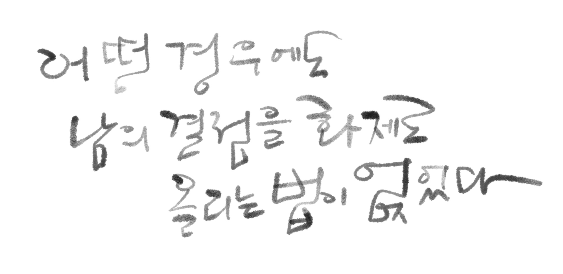 어떤 경우에도
남의 결점을 화제로
올리는 법이 없었다